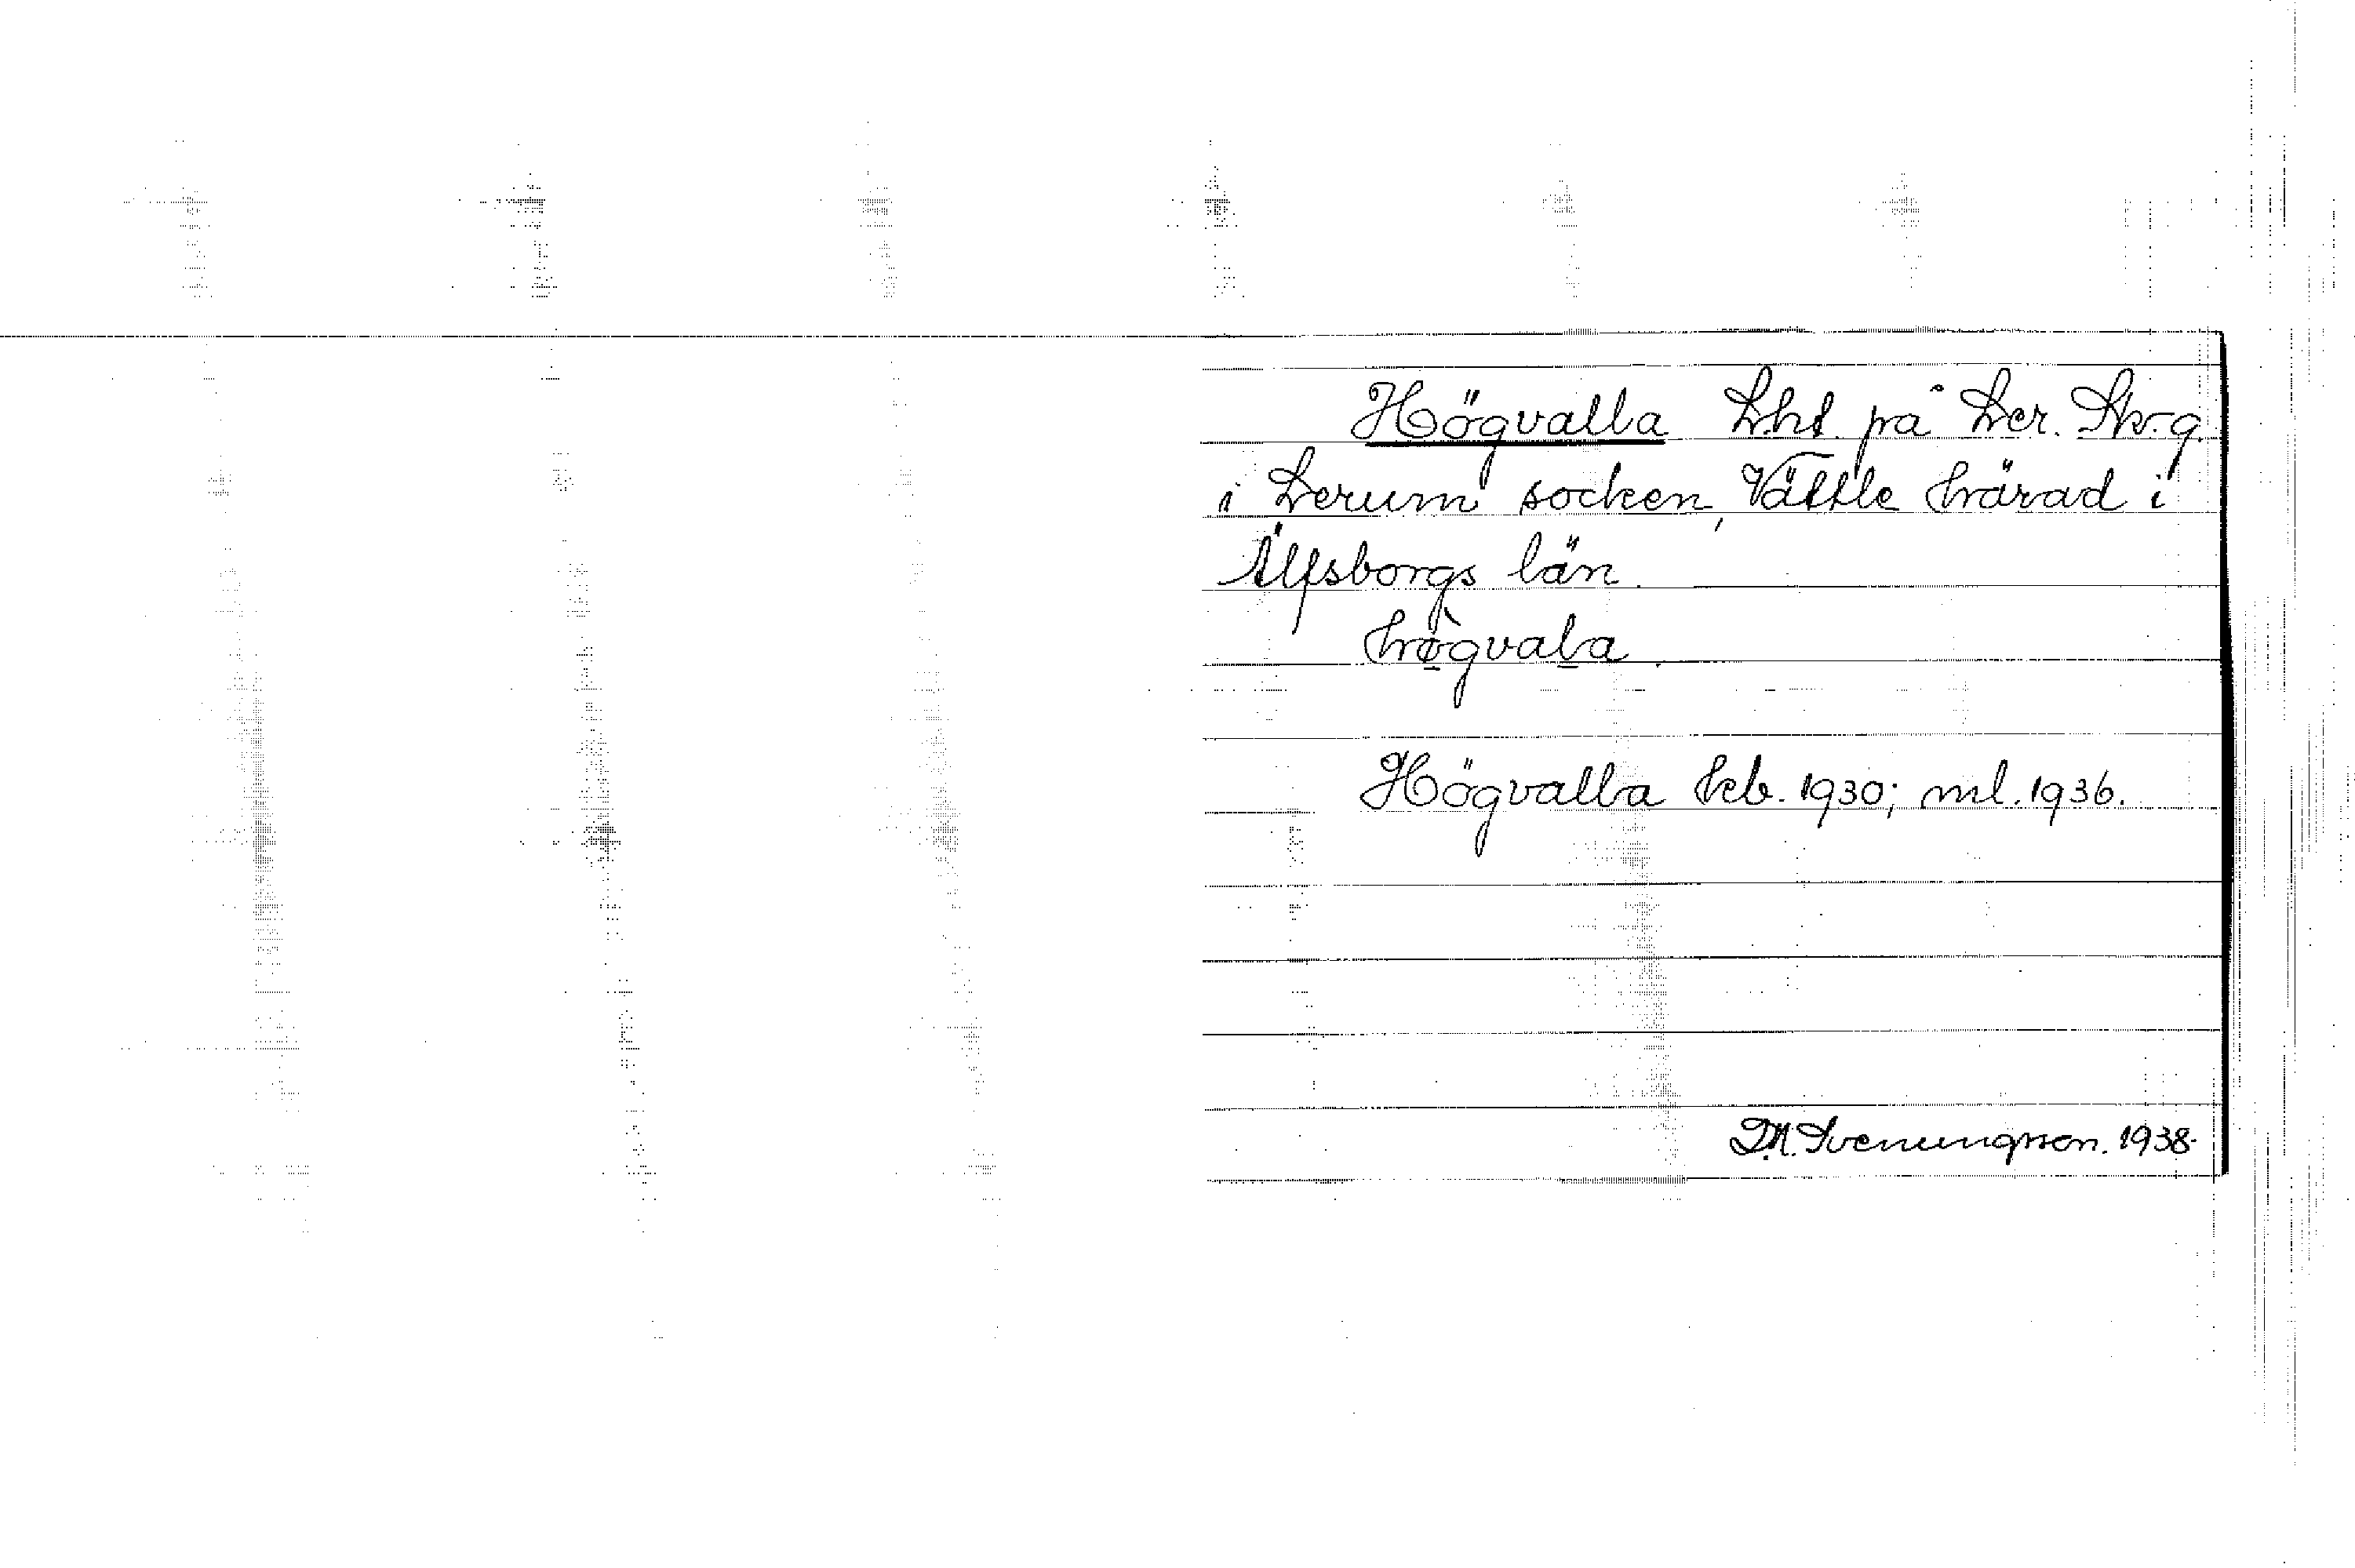 Högvalla Lht. på Ler. Skr.g.
i Lerum socken, Vättle härad i
Älfsborgs län.
hògvala.
Högvalla kb. 1930; ml. 1936.
D.M. Svenungsson. 1938.